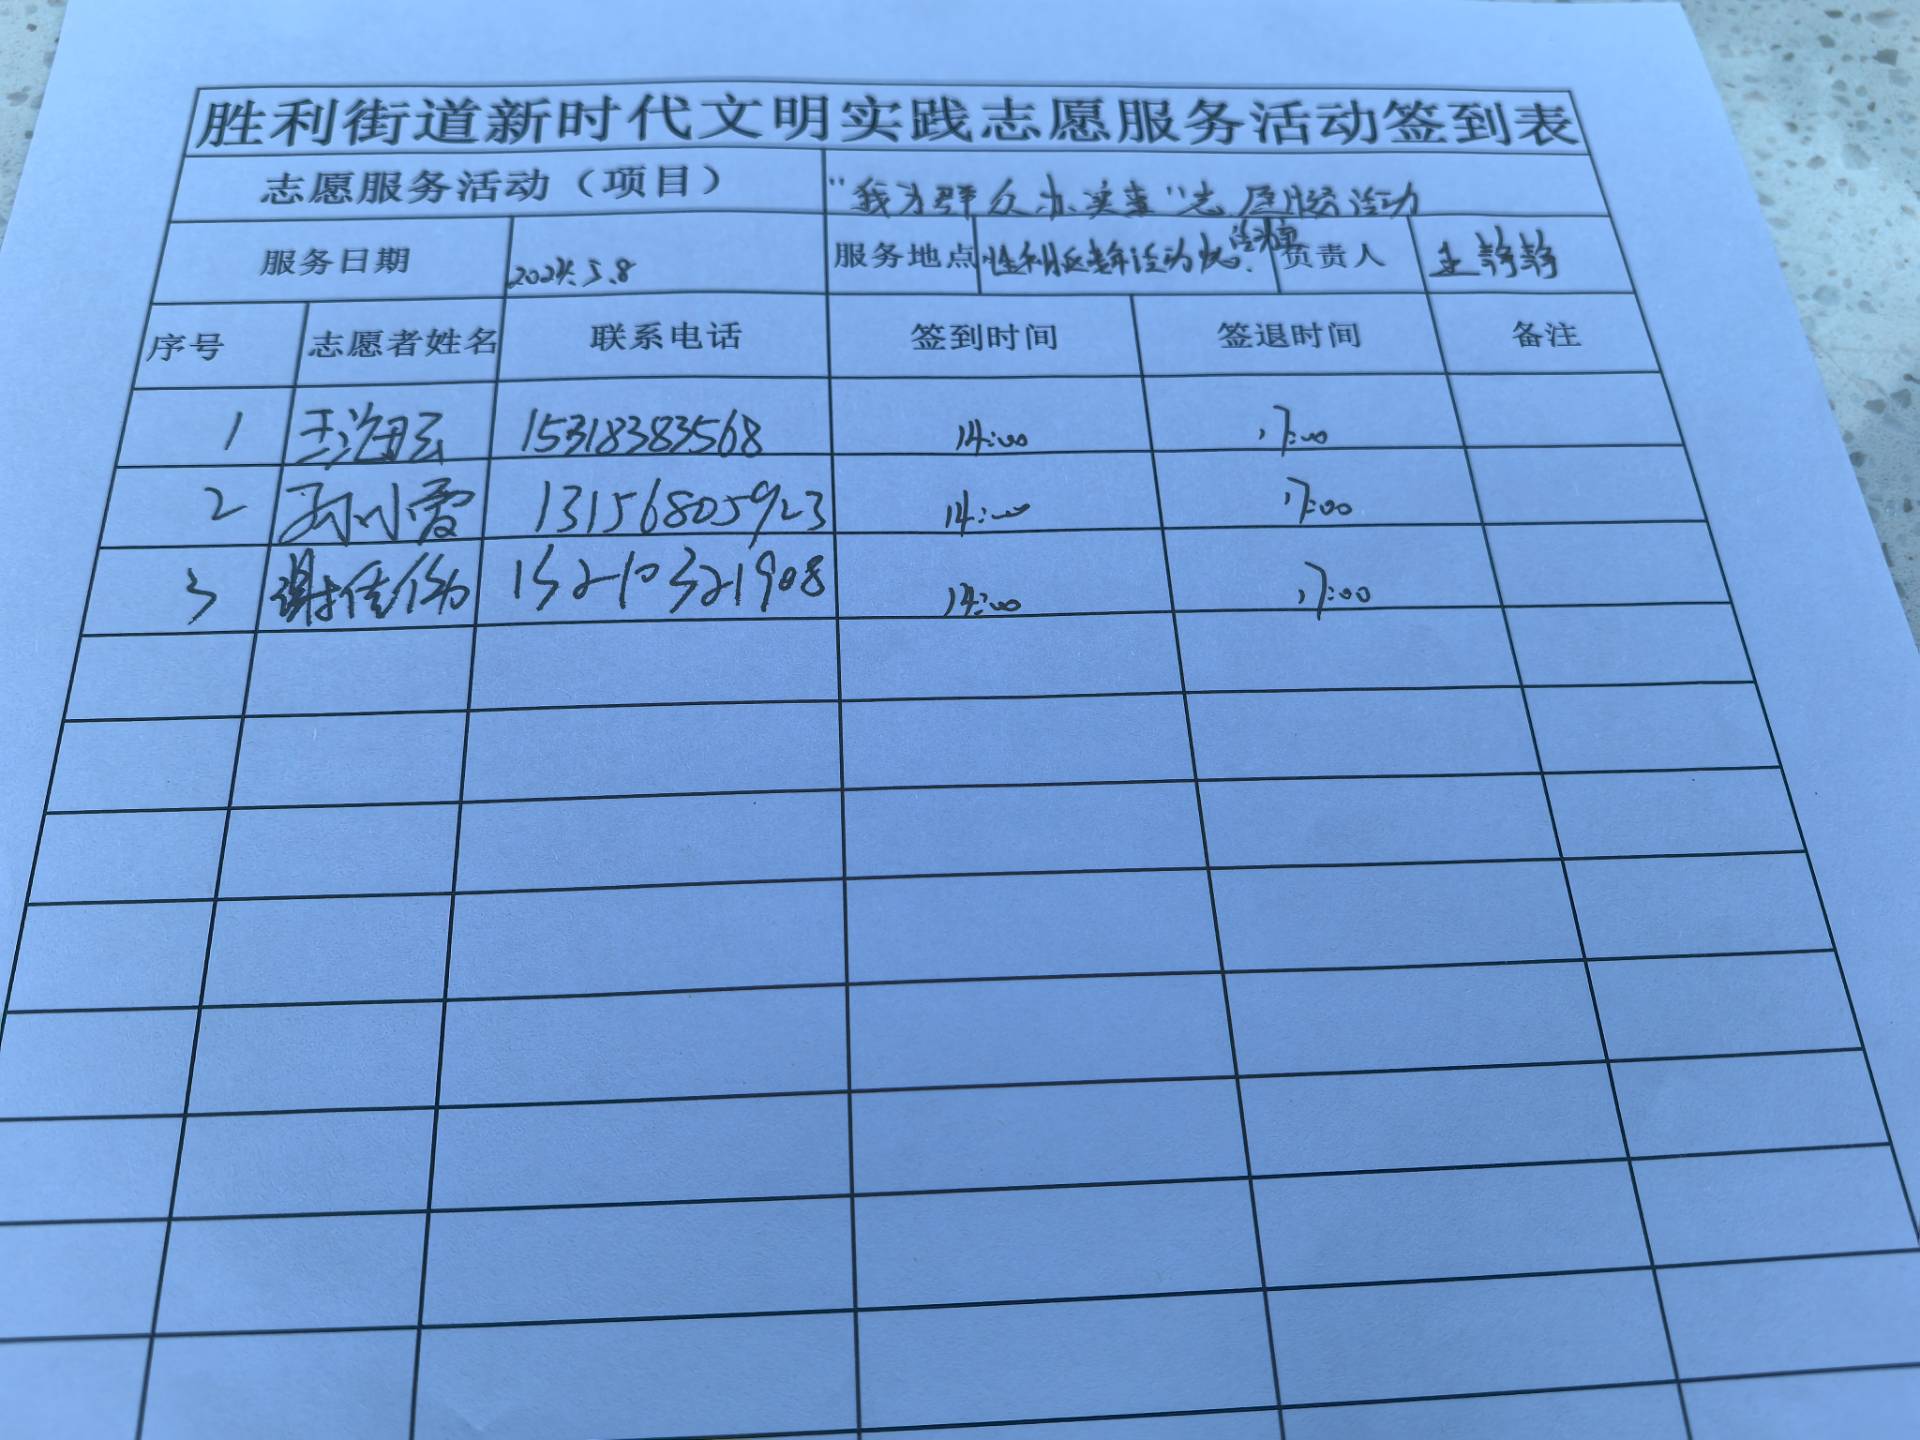 胜利街道新时代文明实践志愿服务活动签到表
志愿服务活动（项目） "我为群众办实事"志愿服务活动
服务日期 2024.5.8 服务地点 负责人 王静静
序号 志愿者姓名 联系电话 签到时间 签退时间 备注
1 王海云 15318383568 14:00 17:00
2 孙小霞 13156805923 14:00 17:00
3 谢佳 15210321908 14:00 17:00